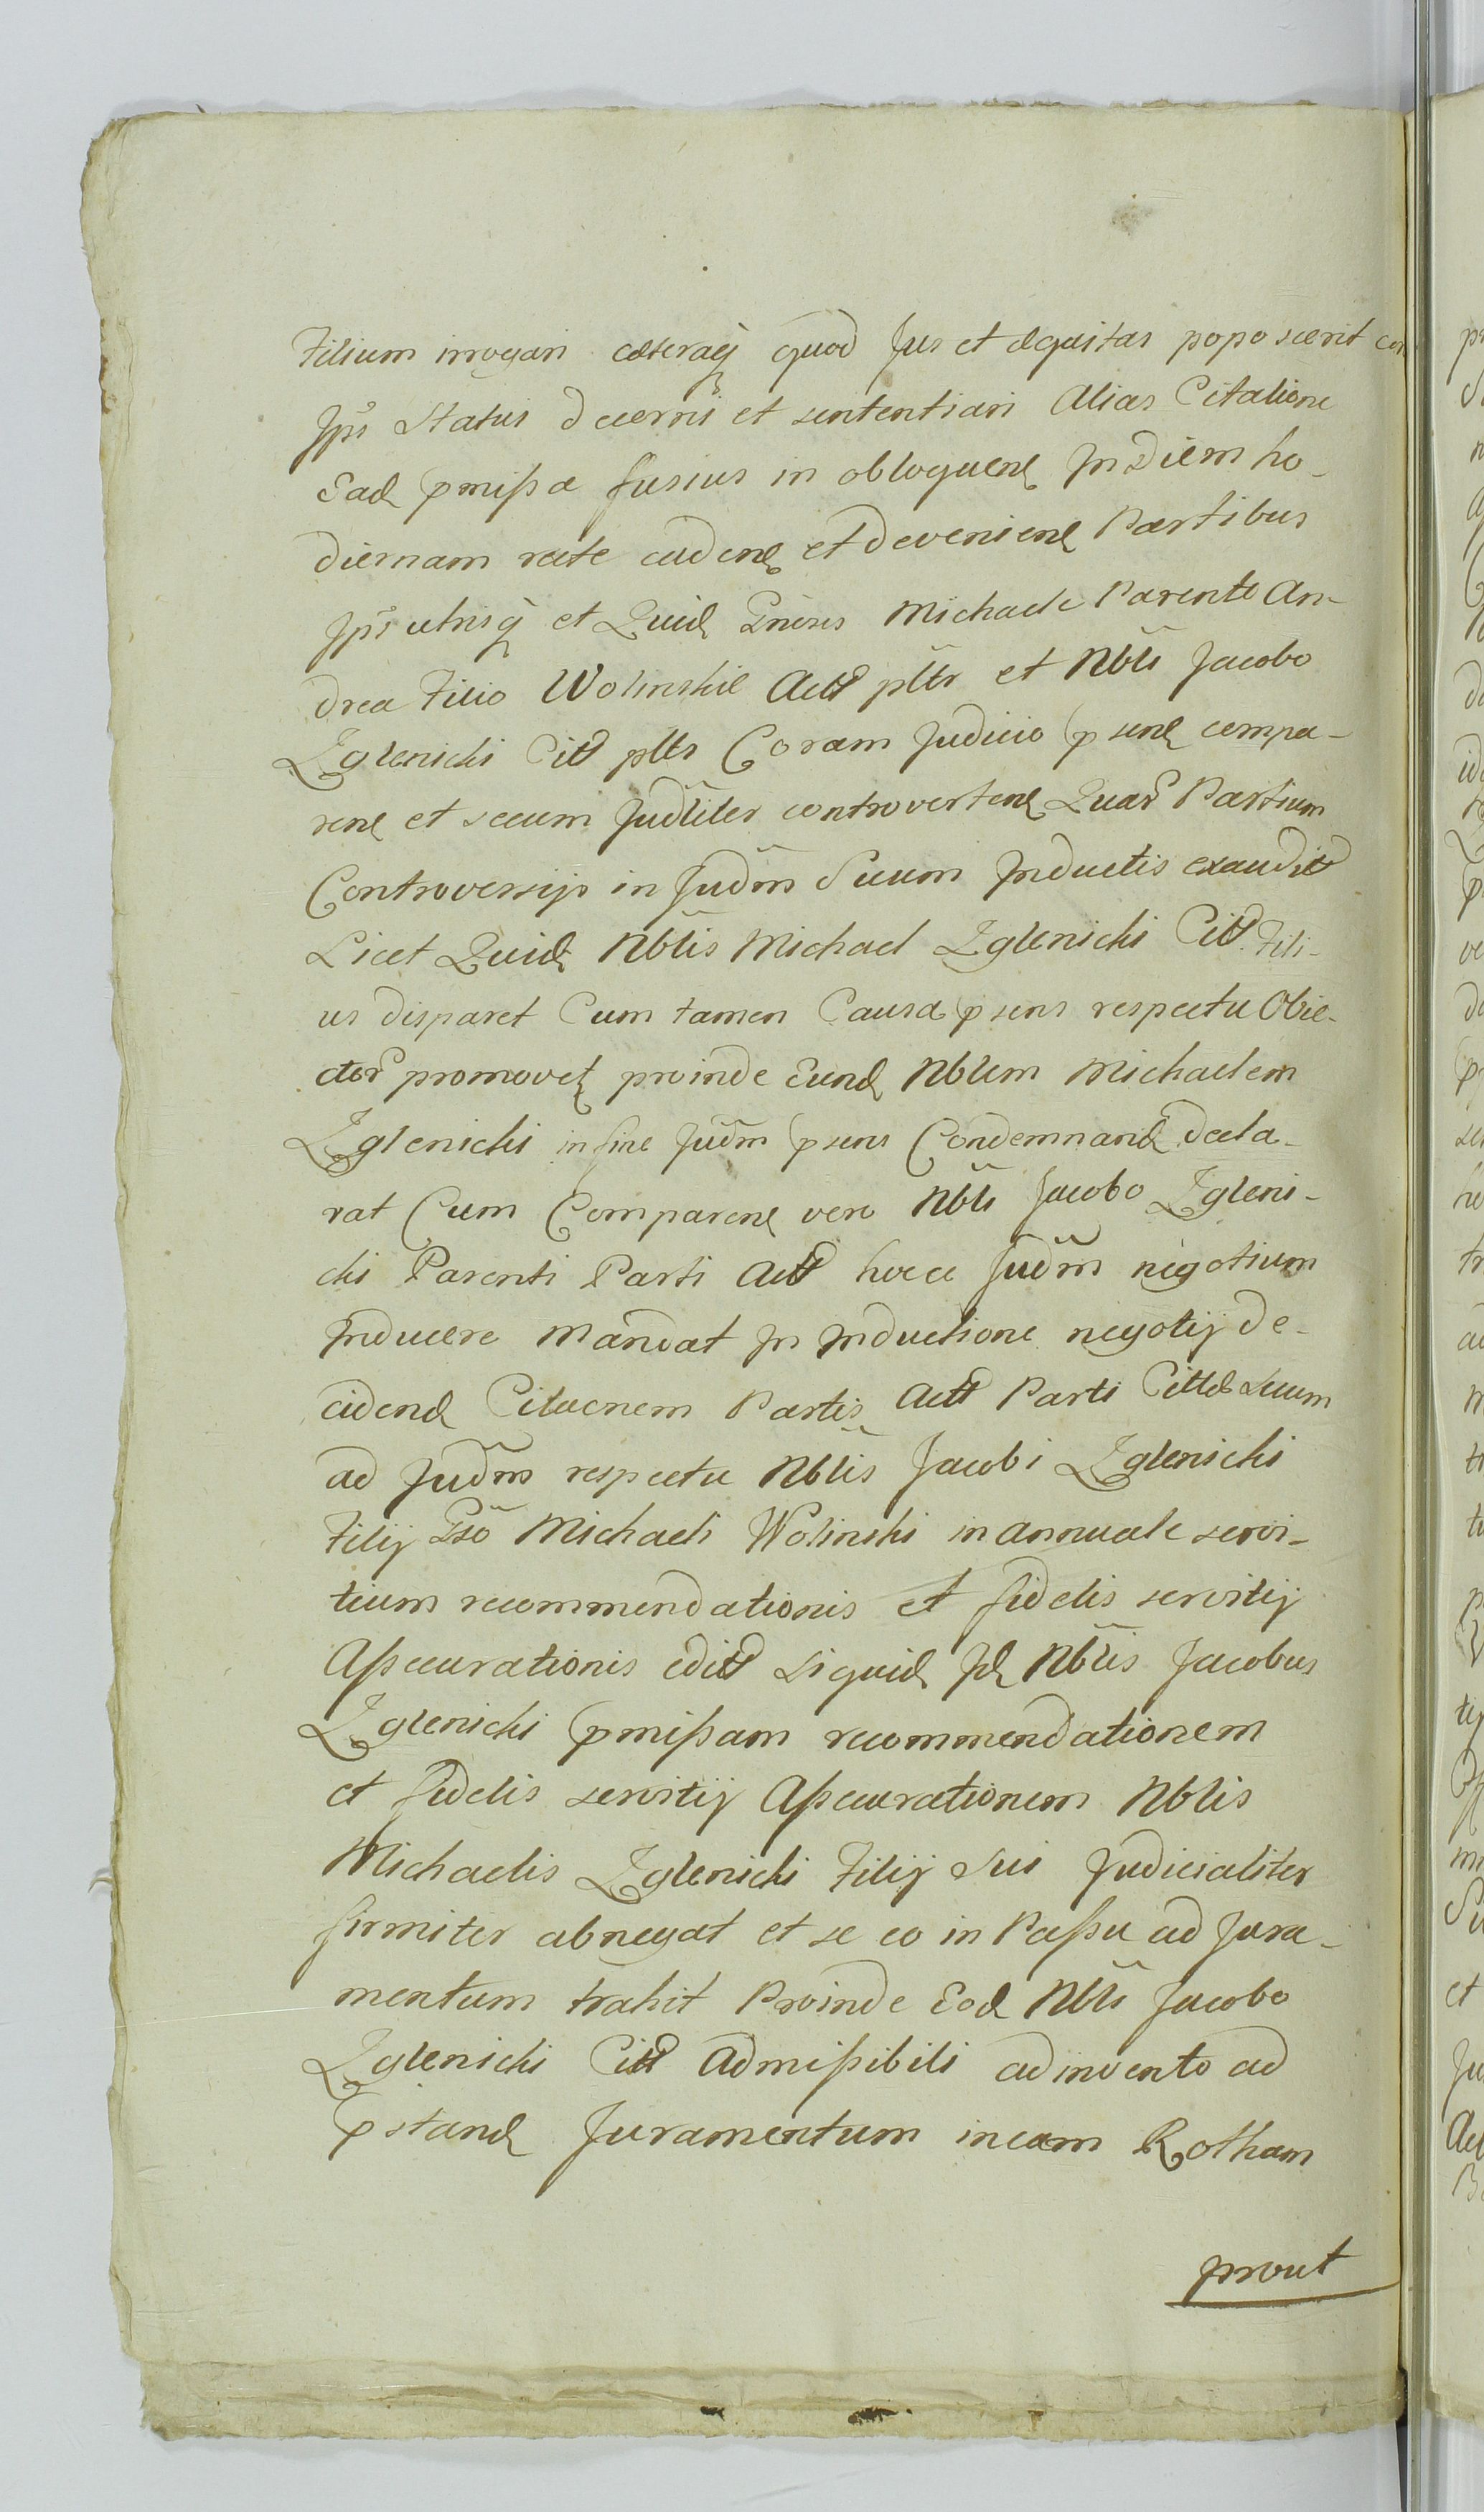 Filium irrogari cæteraq̃ quod Jus et æquitas poposcerit con
Jpĩ Status decerni et sententiari Alias Citatione
Ead pmissa fusius in obloquen Jn Diem ho-
diernam recte caden et devenien Partibus
Jpĩ utrisq̃ et Quid Gñosis Michaele Parente An-
drea Filio Wolinskie Actt pltr et Nbli Jacobo
Zglenicki Citt pltr Coram Judicio psen compa-
ren et secum Judliter controverten Quar Partium
Controversijs in Judm̃ Suum Jnductis exaudit
Licet Quid Nblis Michael Zglenicki Citt Fili-
us disparet Cum tamen Causa psens respectu Obie-
ctor promovet proinde Eund Nblem Michaelem
Zglenicki in fine Judm̃ psens Condemnand decla-
rat Cum Comparen vero Nbli Jacobo Zgleni-
cki Parenti Parti Actt hocce Judm̃ negotium
Jnducere Mandat Jn Jnductione negotij de-
cidend Citaenem Partis Actt Parti Citte Suum
ad Judm̃ respectu Nblis Jacobi Zglenicki
Filij Gso Michaeli Wolinski in annuale servi-
tium recommendationis et fidelis servitij
Assecurationis editt siquid Jd Nblis Jacobus
Zglenicki pmissam recommendationem
et fidelis servitij Assecurationem Nblis
Michaelis Zglenicki Filij Sui Judicialiter
firmiter abnegat et se eo in Passu ad Jura-
mentum trahit Proinde Eod Nbli Jacobo
Zglenicki Citt Admissibili adinvento ad
pstand Juramentum in eam Rotham
prout